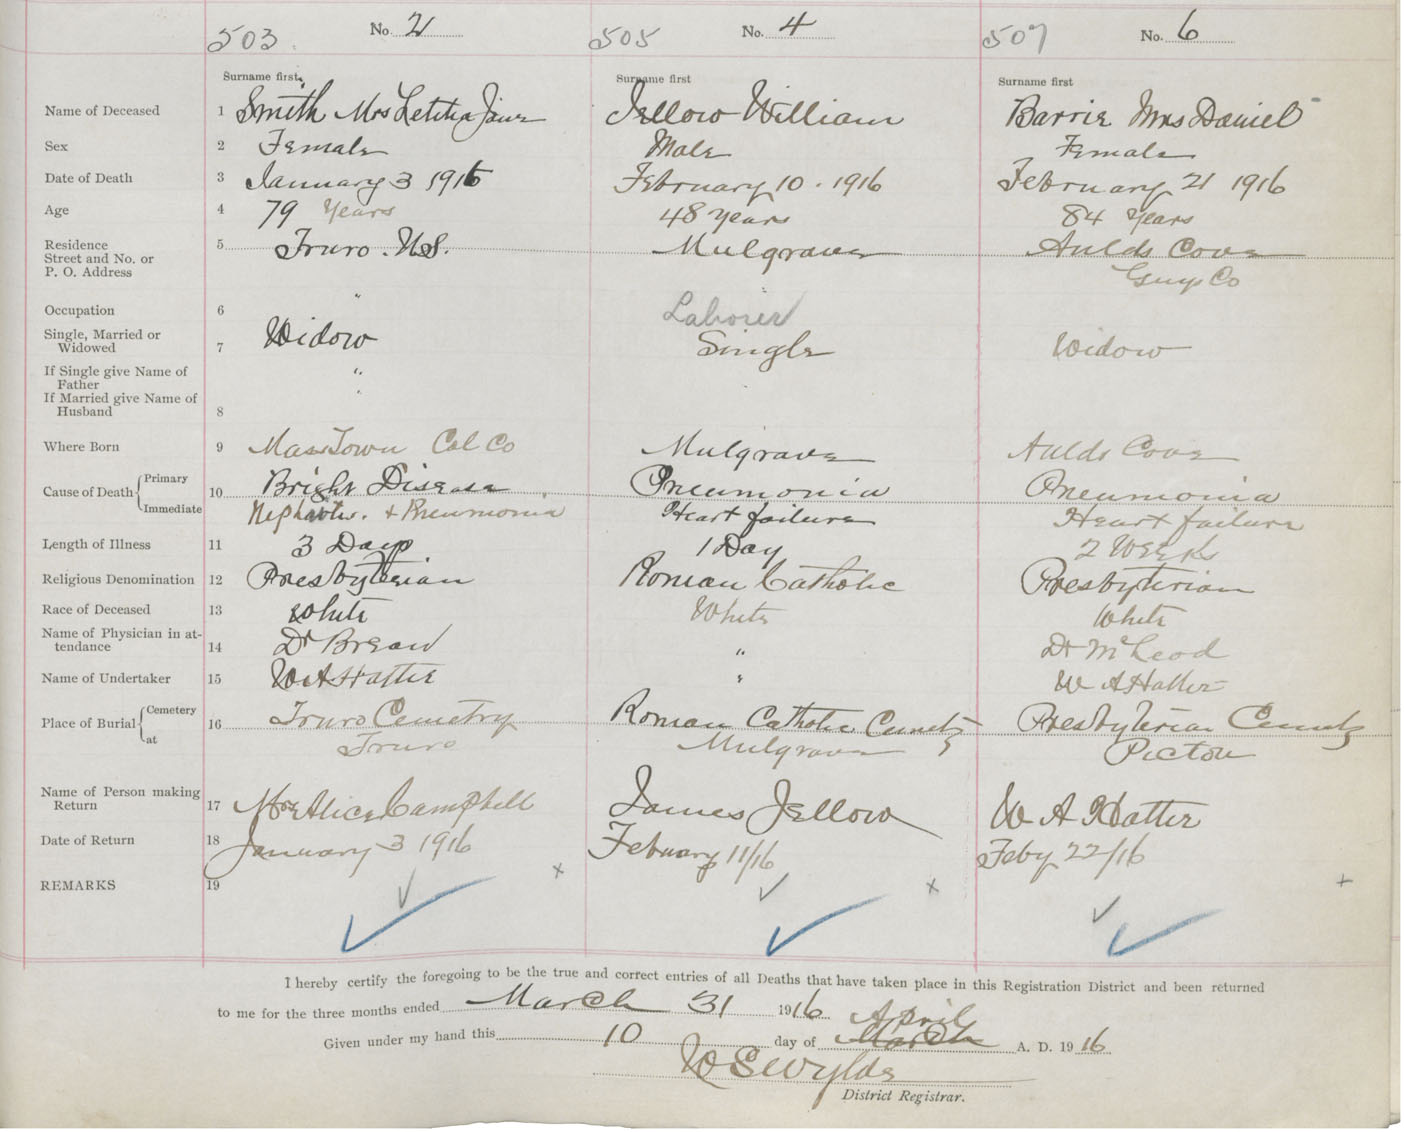 503 No. 2 505 No. 4 507 No. 6
Surname first Surname first Surname first
Name of Deceased 1 Smith Mrs Letitia Jane Jellow William Barrie Mrs Daniel
Sex 2 Female Male Female
Date of Death 3 January 3 1916 February 10. 1916 February 21 1916
Age 4 79 Years 48 years 84 years
Residence
Street and No. or
P. O. Address
5 Truro. N.S. Mulgrave Aulds Cove
Guys Co
Occupation 6 " Laborer
Single, Married or
Widowed 7 Widow Single Widow
If Single give Name of
Father "
If Married give Name of
Husband 8
Where Born 9 MassTown Col Co Mulgrave Aulds Cove
Cause of Death Primary 10 Bright Disease Pneumonia Pneumonia
Immediate + Pneumonia Heart failure Heart failure
Length of Illness 11 3 Days 1 Day 2 Weeks
Religious Denomination 12 Presbyterian Roman Catholic Presbyterian
Race of Deceased 13 White White White
Name of Physician in at-
tendance 14 Dr " Dr McLeod
Name of Undertaker 15 W A Hatter " W A Hatter
Place of Burial Cemetery 16 Truro Cemetry Roman Catholic Cemety Presbyterian Cemety
at Truro Mulgrave Pictou
Name of Person making
Return 17 Mrs Alice Campbell James Jellow W A Hatter
Date of Return 18 January 3 1916 February 11/16 Feby 22/16
REMARKS 19
I hereby certify the foregoing to be the true and correct entries of all Deaths that have taken place in this Registration District and been returned
to me for the three months ended March 31 1916
April
Given under my hand this 10 day of March A. D. 1916
W S Wylde
District Registrar.